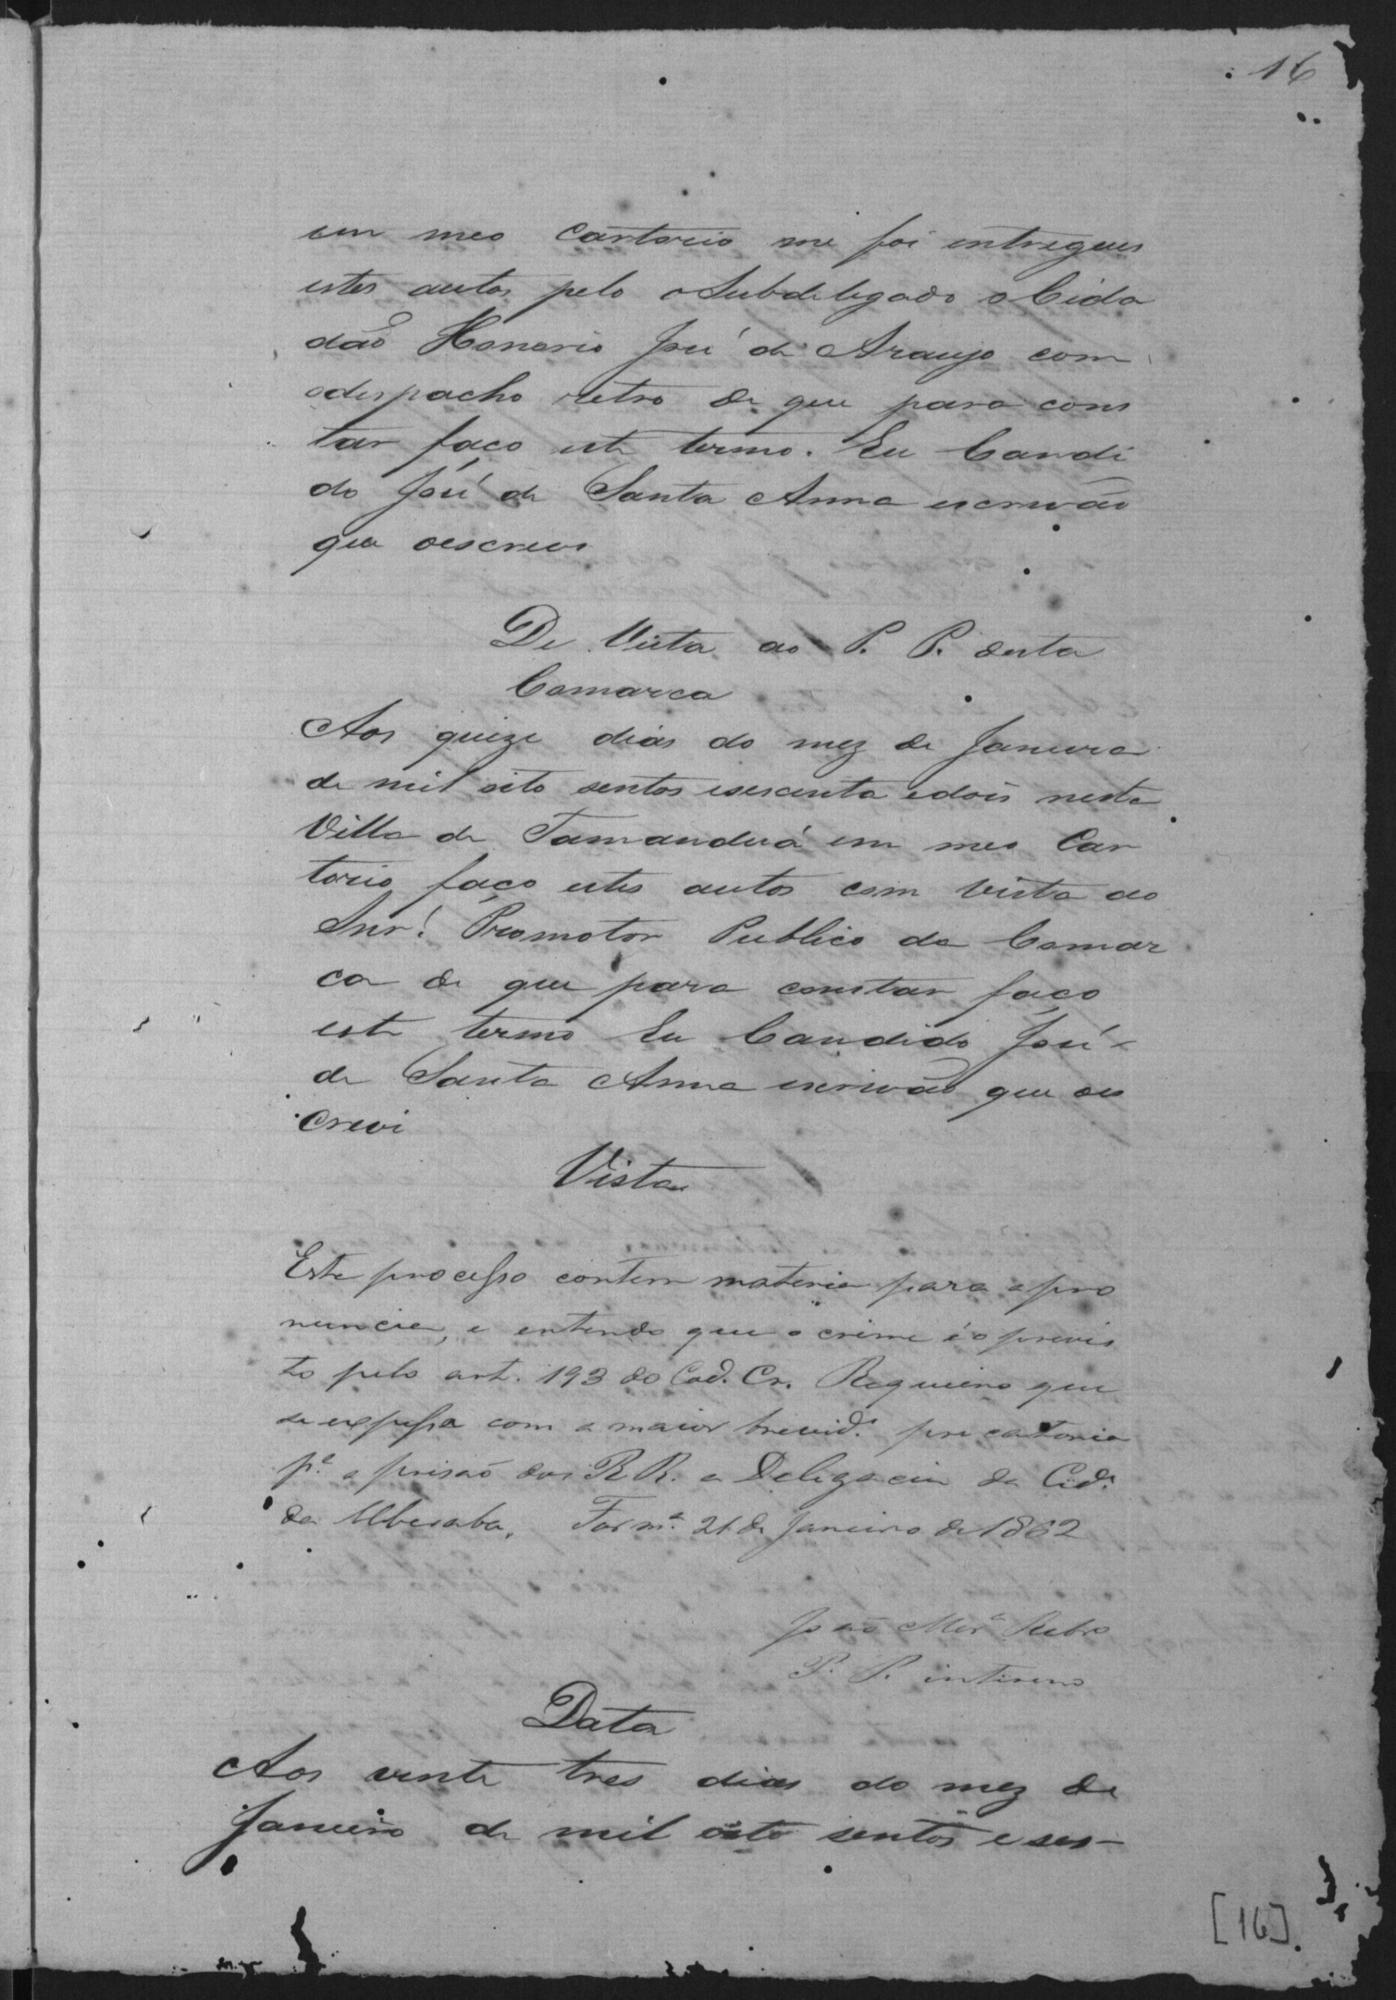 16
em meo cartorio me foi entregues
estes autos pelo o Subdelegado o Cida
dão Honorio José de Araujo com
odespacho retro de que para cons
tar faço este termo. Eu Candi
do José de Santa Anna escrivão
que oescrevi
De Vista ao P. P. desta
Comarca
Aos quize dias do mez de Janeiro
de mil oito sentos esescenta edois nesta
Villa de Tamanduá em meo Car
torio faço estes autos com vista ao
Snr.! Promotor Publico da Comar
ca de que para constar faço
este termo Eu Candido José
de Santa Anna escrivão que oes
crevi
Vista
Este processo contem materia para a pro
nuncia, e entendo que o crime é o previs
to pelo art. 193 do Cod. Cr. Requeiro que
se expessa com a maior brevid.e precatoria
p.a a prisaõ dos R R. a Delegacia da Cid.e
da Uberaba. Form.a 21 de Janeiro de 1862
João Mor.a Ribro
P. P. interino
Data
Aos vente tres dias do mez de
Janeiro de mil oito sentos e ses-
[16]